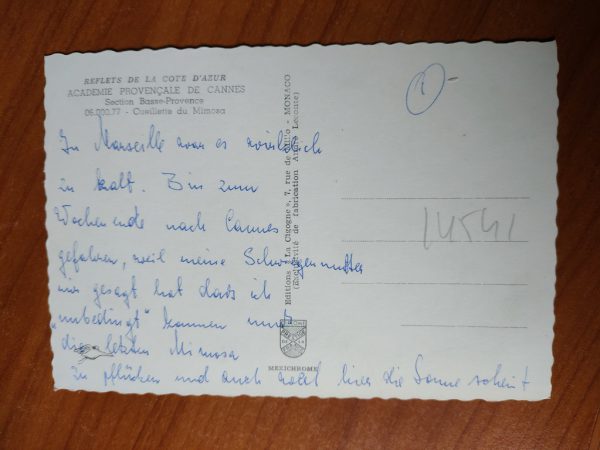 REFLETS DE LA COTE D'AZUR
ACADEMIE PROVENÇALE DE CANNES
Section Basse-Provence
06.000.77 - Cueillette du Mimosa
In Marseille war es wirklich
kalt. Bin zum
Wochenende nach Cannes
gefahren, weil meine Schwiegermutter
mir gesagt hat dass ich
"unbedingt" kommen muss
die letzten Mimosa
zu pflücken und auch weil hier die Sonne scheint
Editions "La Cigogne", 7, rue de - MONACO
(Exclusivité de fabrication André Leconte)
MEXICHROME
1
14541